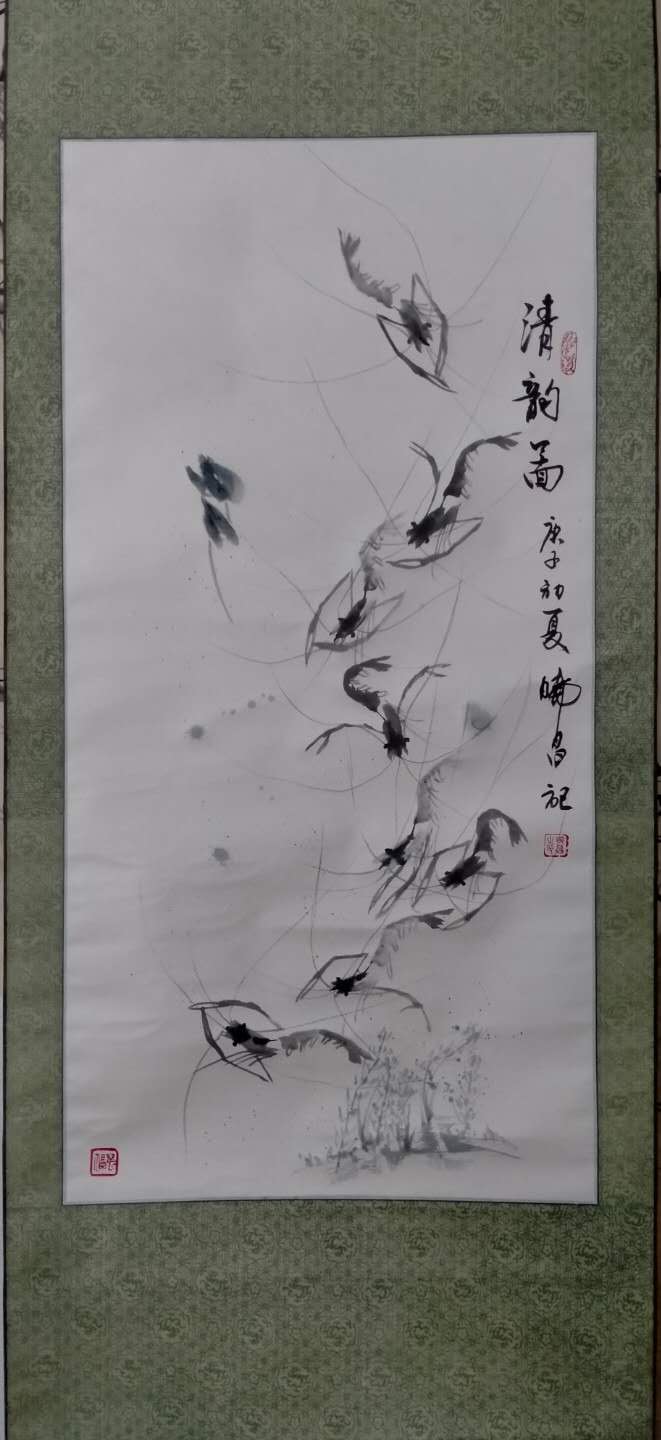 清韵啚
庚子初夏 晓昌记